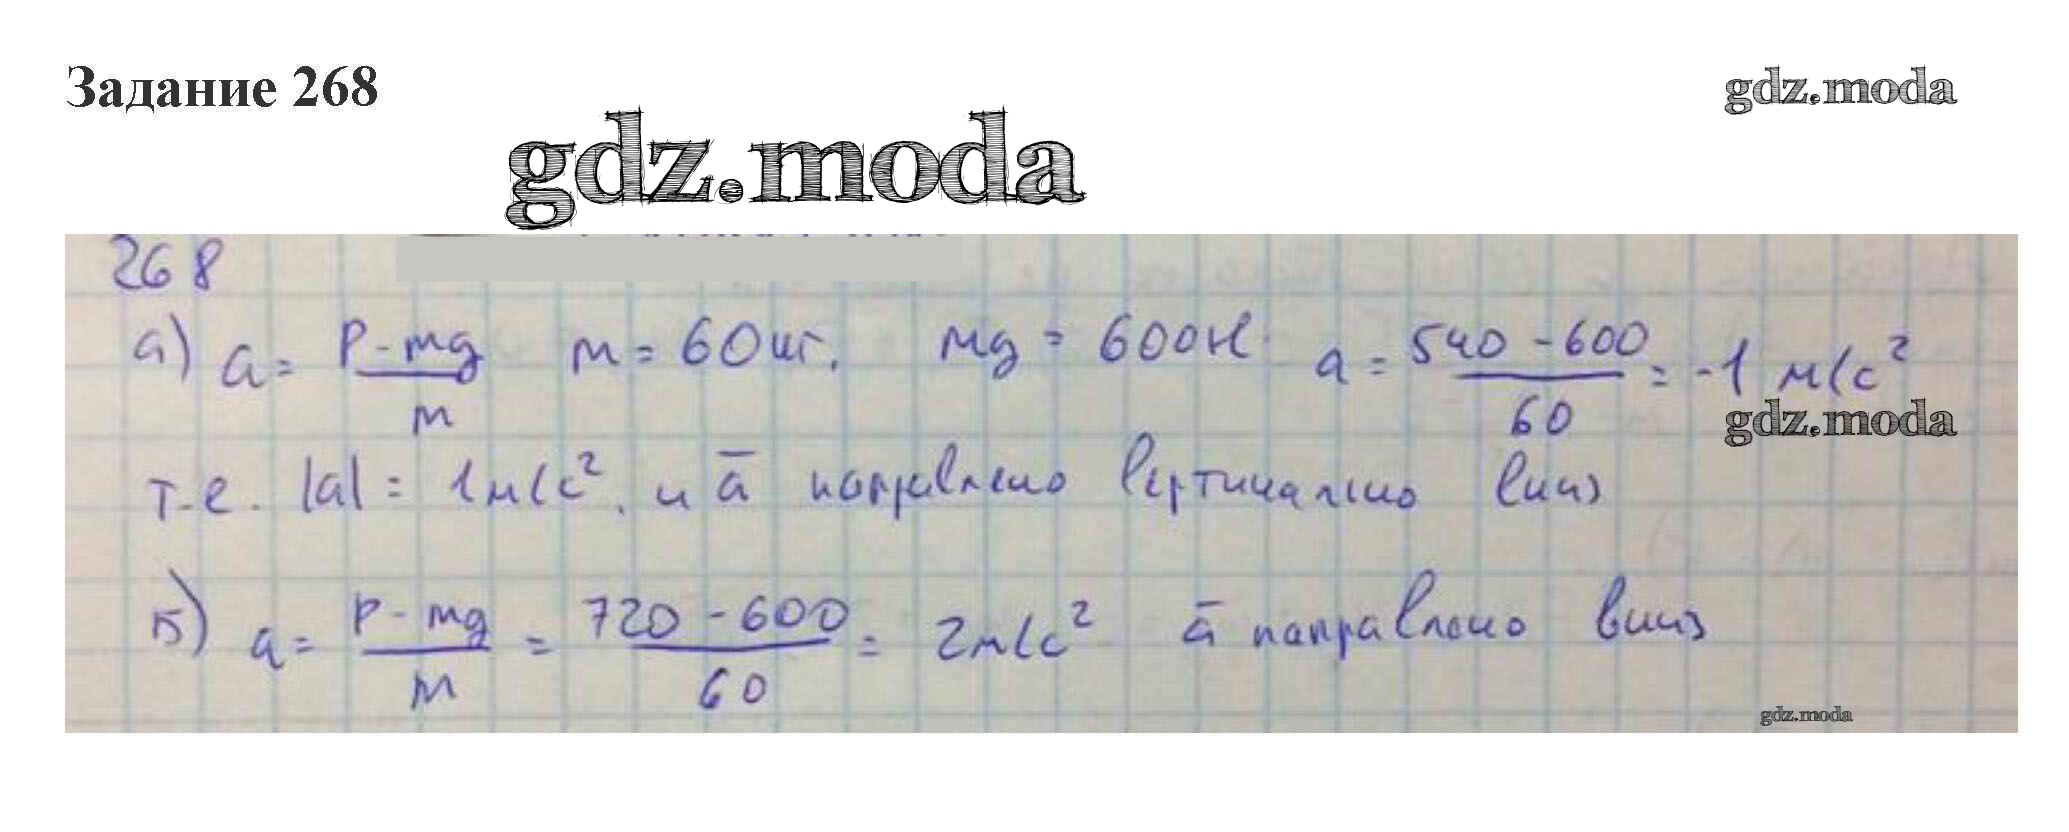 Задание 268
gdz.moda
gdz.moda
268
а) a = P - mg / m   m = 60 кг.   mg = 600 Н   a = 540 - 600 / 60 = -1 м/с²
gdz.moda
т.е. |a| = 1 м/с². и a̅ направлено вертикально вниз
б) a = P - mg / m = 720 - 600 / 60 = 2 м/с²   a̅ направлено вниз
gdz.moda